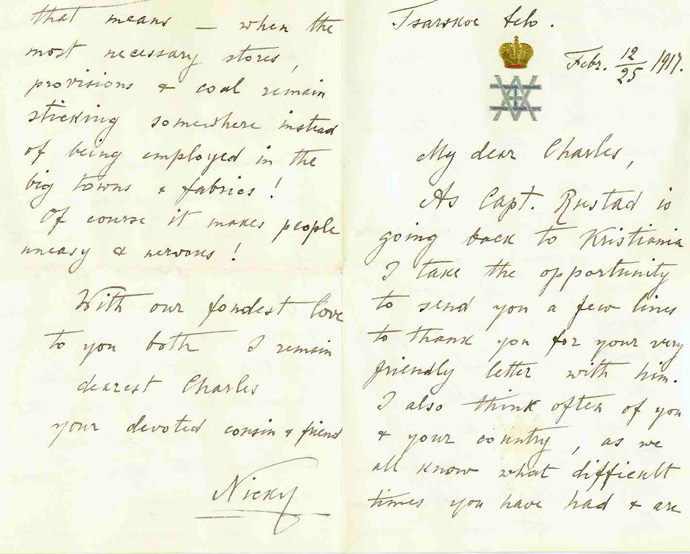 Tsarskoe Selo.
Febr. 12/25 1917.
My dear Charles,
As Capt. Rustad is
going back to Kristiania
I take the opportunity
to send you a few lines
to thank you for your very
friendly letter with him.
I also think often of you
& your country, as we
all know what difficult
times you have had & are
that means — when the
most necessary stores,
provisions & coal remain
sticking somewhere instead
of being employed in the
big towns & fabrics!
Of course it makes people
uneasy & nervous!
With our fondest love
to you both I remain
dearest Charles
your devoted cousin & friend
Nicky